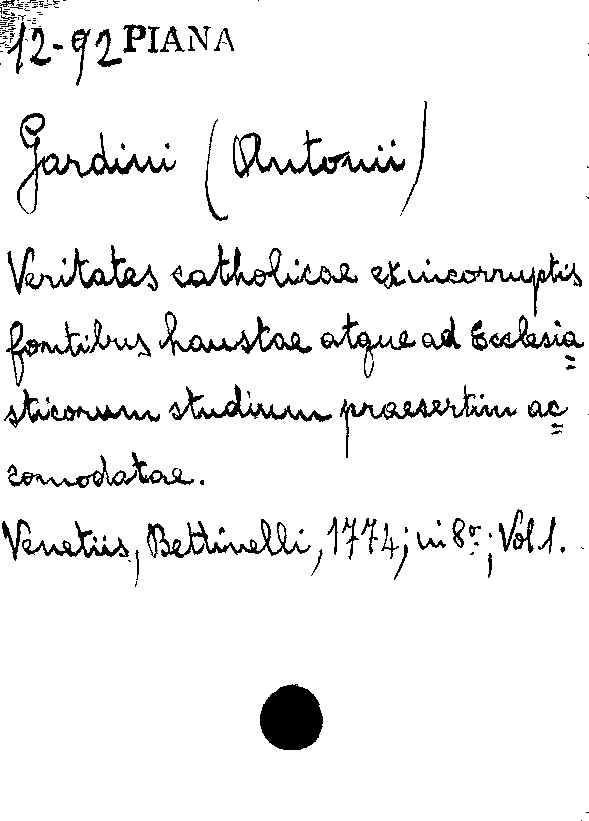 12-92 PIANA
Gardini (Antonii)
Veritates catholicae ex incorruptis
fontibus haustae atque ad Ecclesia=
sticorum studium praesertim ac=
comodatae.
Venetiis, Bettinelli, 1774; in 8º; Vol. 1.